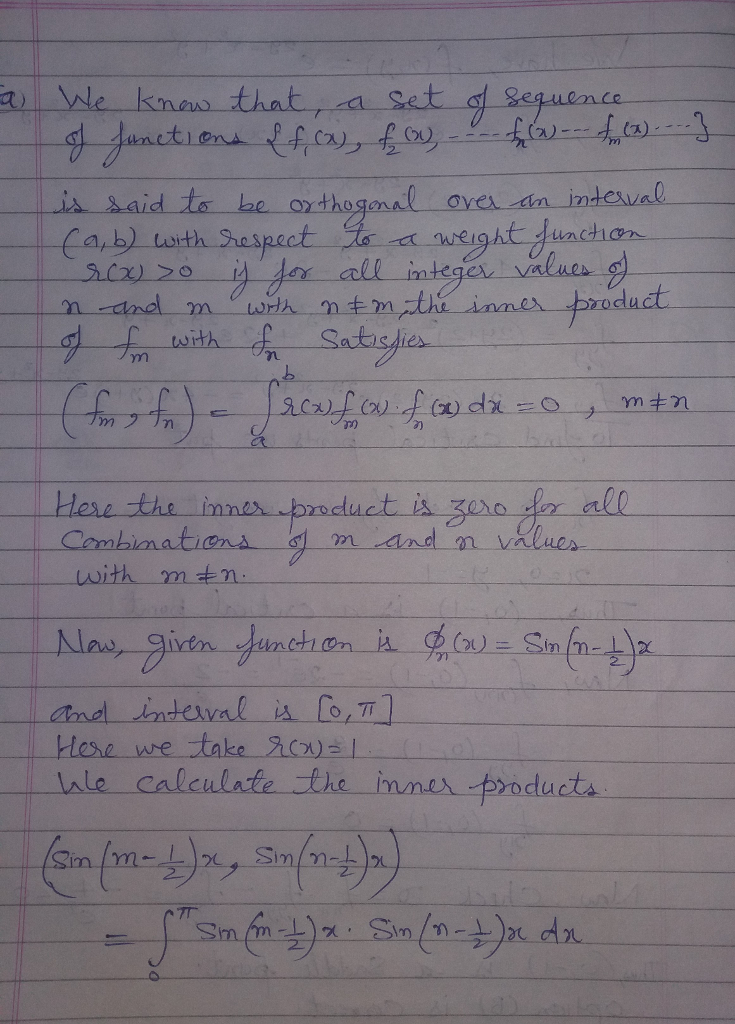 a) We know that, a set of sequence
of functions {f₁(x), f₂(x), ---- fₙ(x)--- fₘ(x)----}
is said to be orthogonal over an interval
(a,b) with respect to a weight function
r(x) >0 if for all integer values of
n and m with n≠m, the inner product
of fₘ with fₙ Satisfies
(fₘ, fₙ) = ∫ₐᵇ r(x) fₘ(x). fₙ(x) dx = 0 , m≠n
Here the inner product is zero for all
Combinations of m and n values
with m≠n.
Now, given function is ϕₙ(x) = Sin(n-1/2)x
and interval is [0, π]
Here we take r(x)=1.
We calculate the inner products.
(Sin(m-1/2)x, Sin(n-1/2)x)
= ∫₀^π Sin(m-1/2)x. Sin(n-1/2)x dx